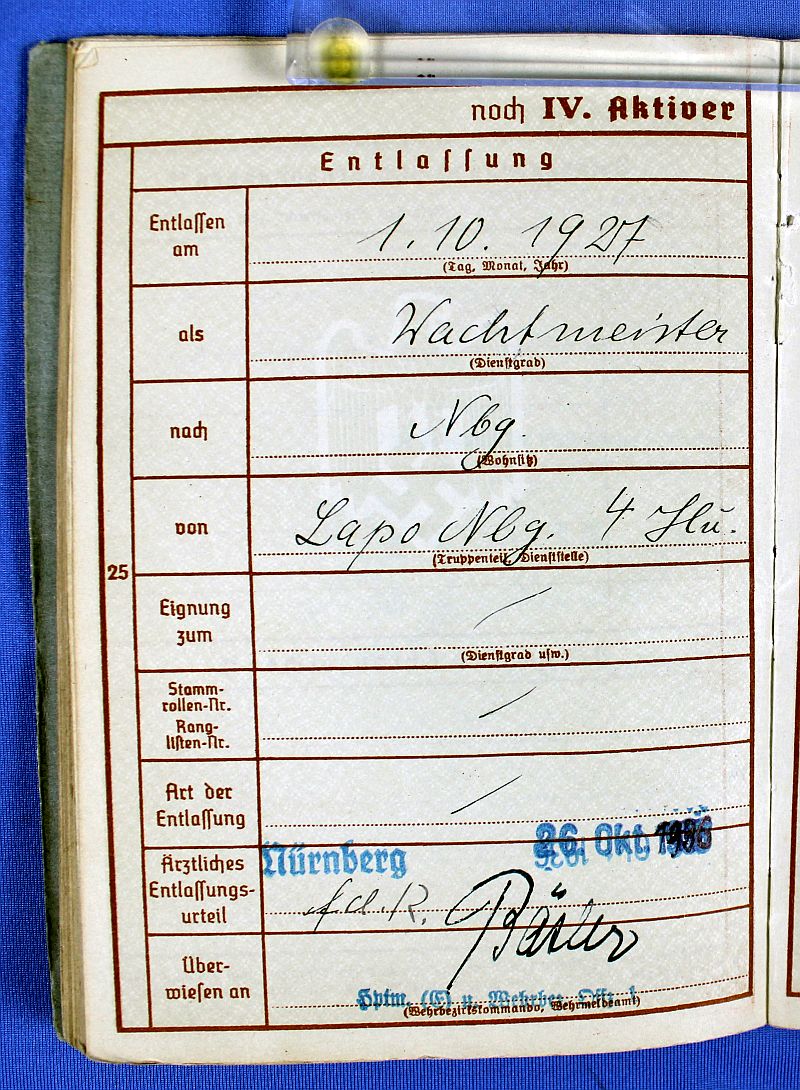 noch IV. Aktiver
Entlassung
Entlassen am
1. 10. 1927
(Tag, Monat, Jahr)
als
Wachtmeister
(Dienstgrad)
nach
Nbg.
(Wohnsitz)
von
Lapo Nbg. 4 Hu.
(Truppenteil, Dienststelle)
25
Eignung zum
(Dienstgrad usw.)
Stamm-
rollen-Nr.
Rang-
listen-Nr.
Art der
Entlassung
Nürnberg 26. Okt 1936
Ärztliches
Entlassungs-
urteil
f.d.R.
Über-
wiesen an
Hptm. (E) u. Wehrbez. Offz. 1
(Wehrbezirkskommando, Wehrmeldeamt)